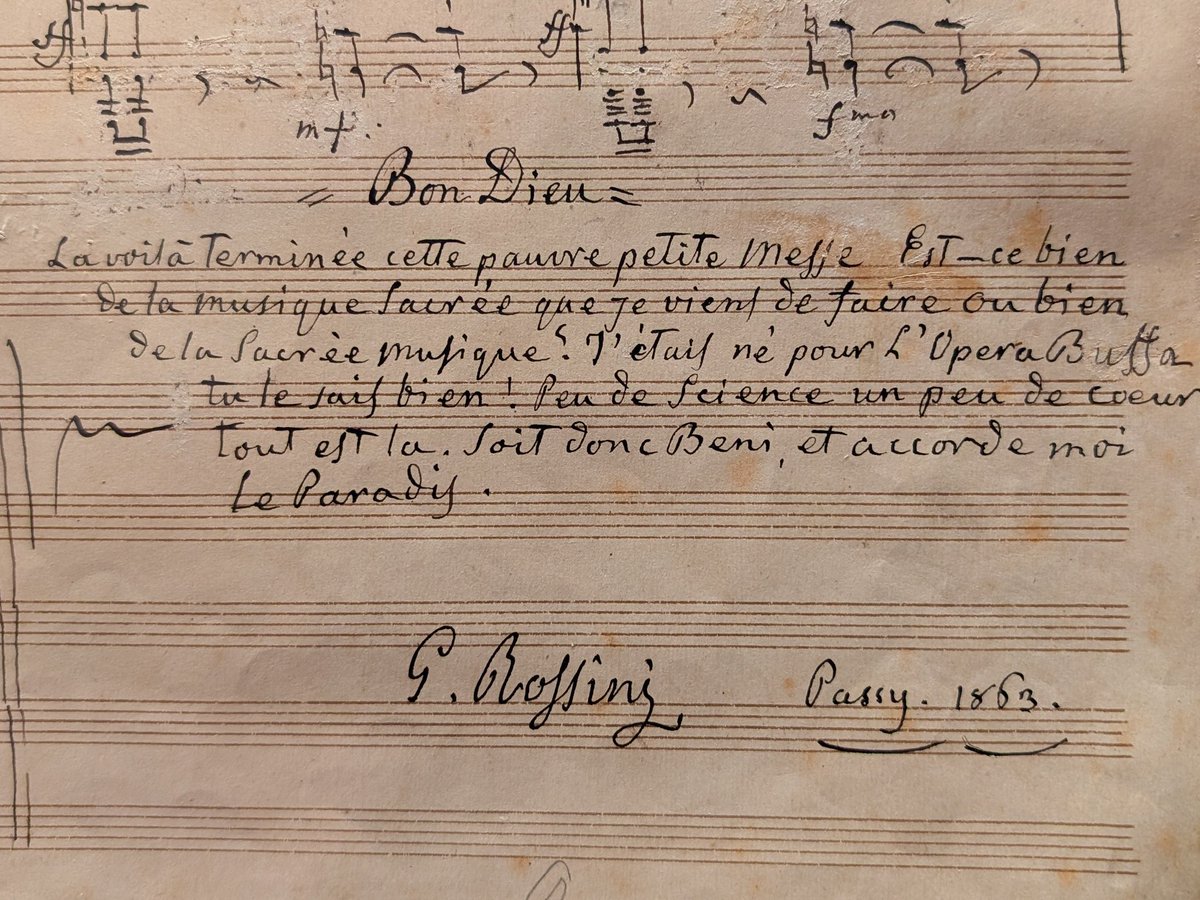 ff
ff
mf.
fmo
= Bon Dieu =
La voilà terminée cette pauvre petite Messe Est-ce bien
de la musique Sacrée que je viens de faire ou bien
de la Sacrée musique? J'étais né pour L'Opera Buffa
tu le sais bien! Peu de Science un peu de coeur
tout est la. Soit donc Beni, et accorde moi
Le Paradis.
G. Rossini
Passy. 1863.